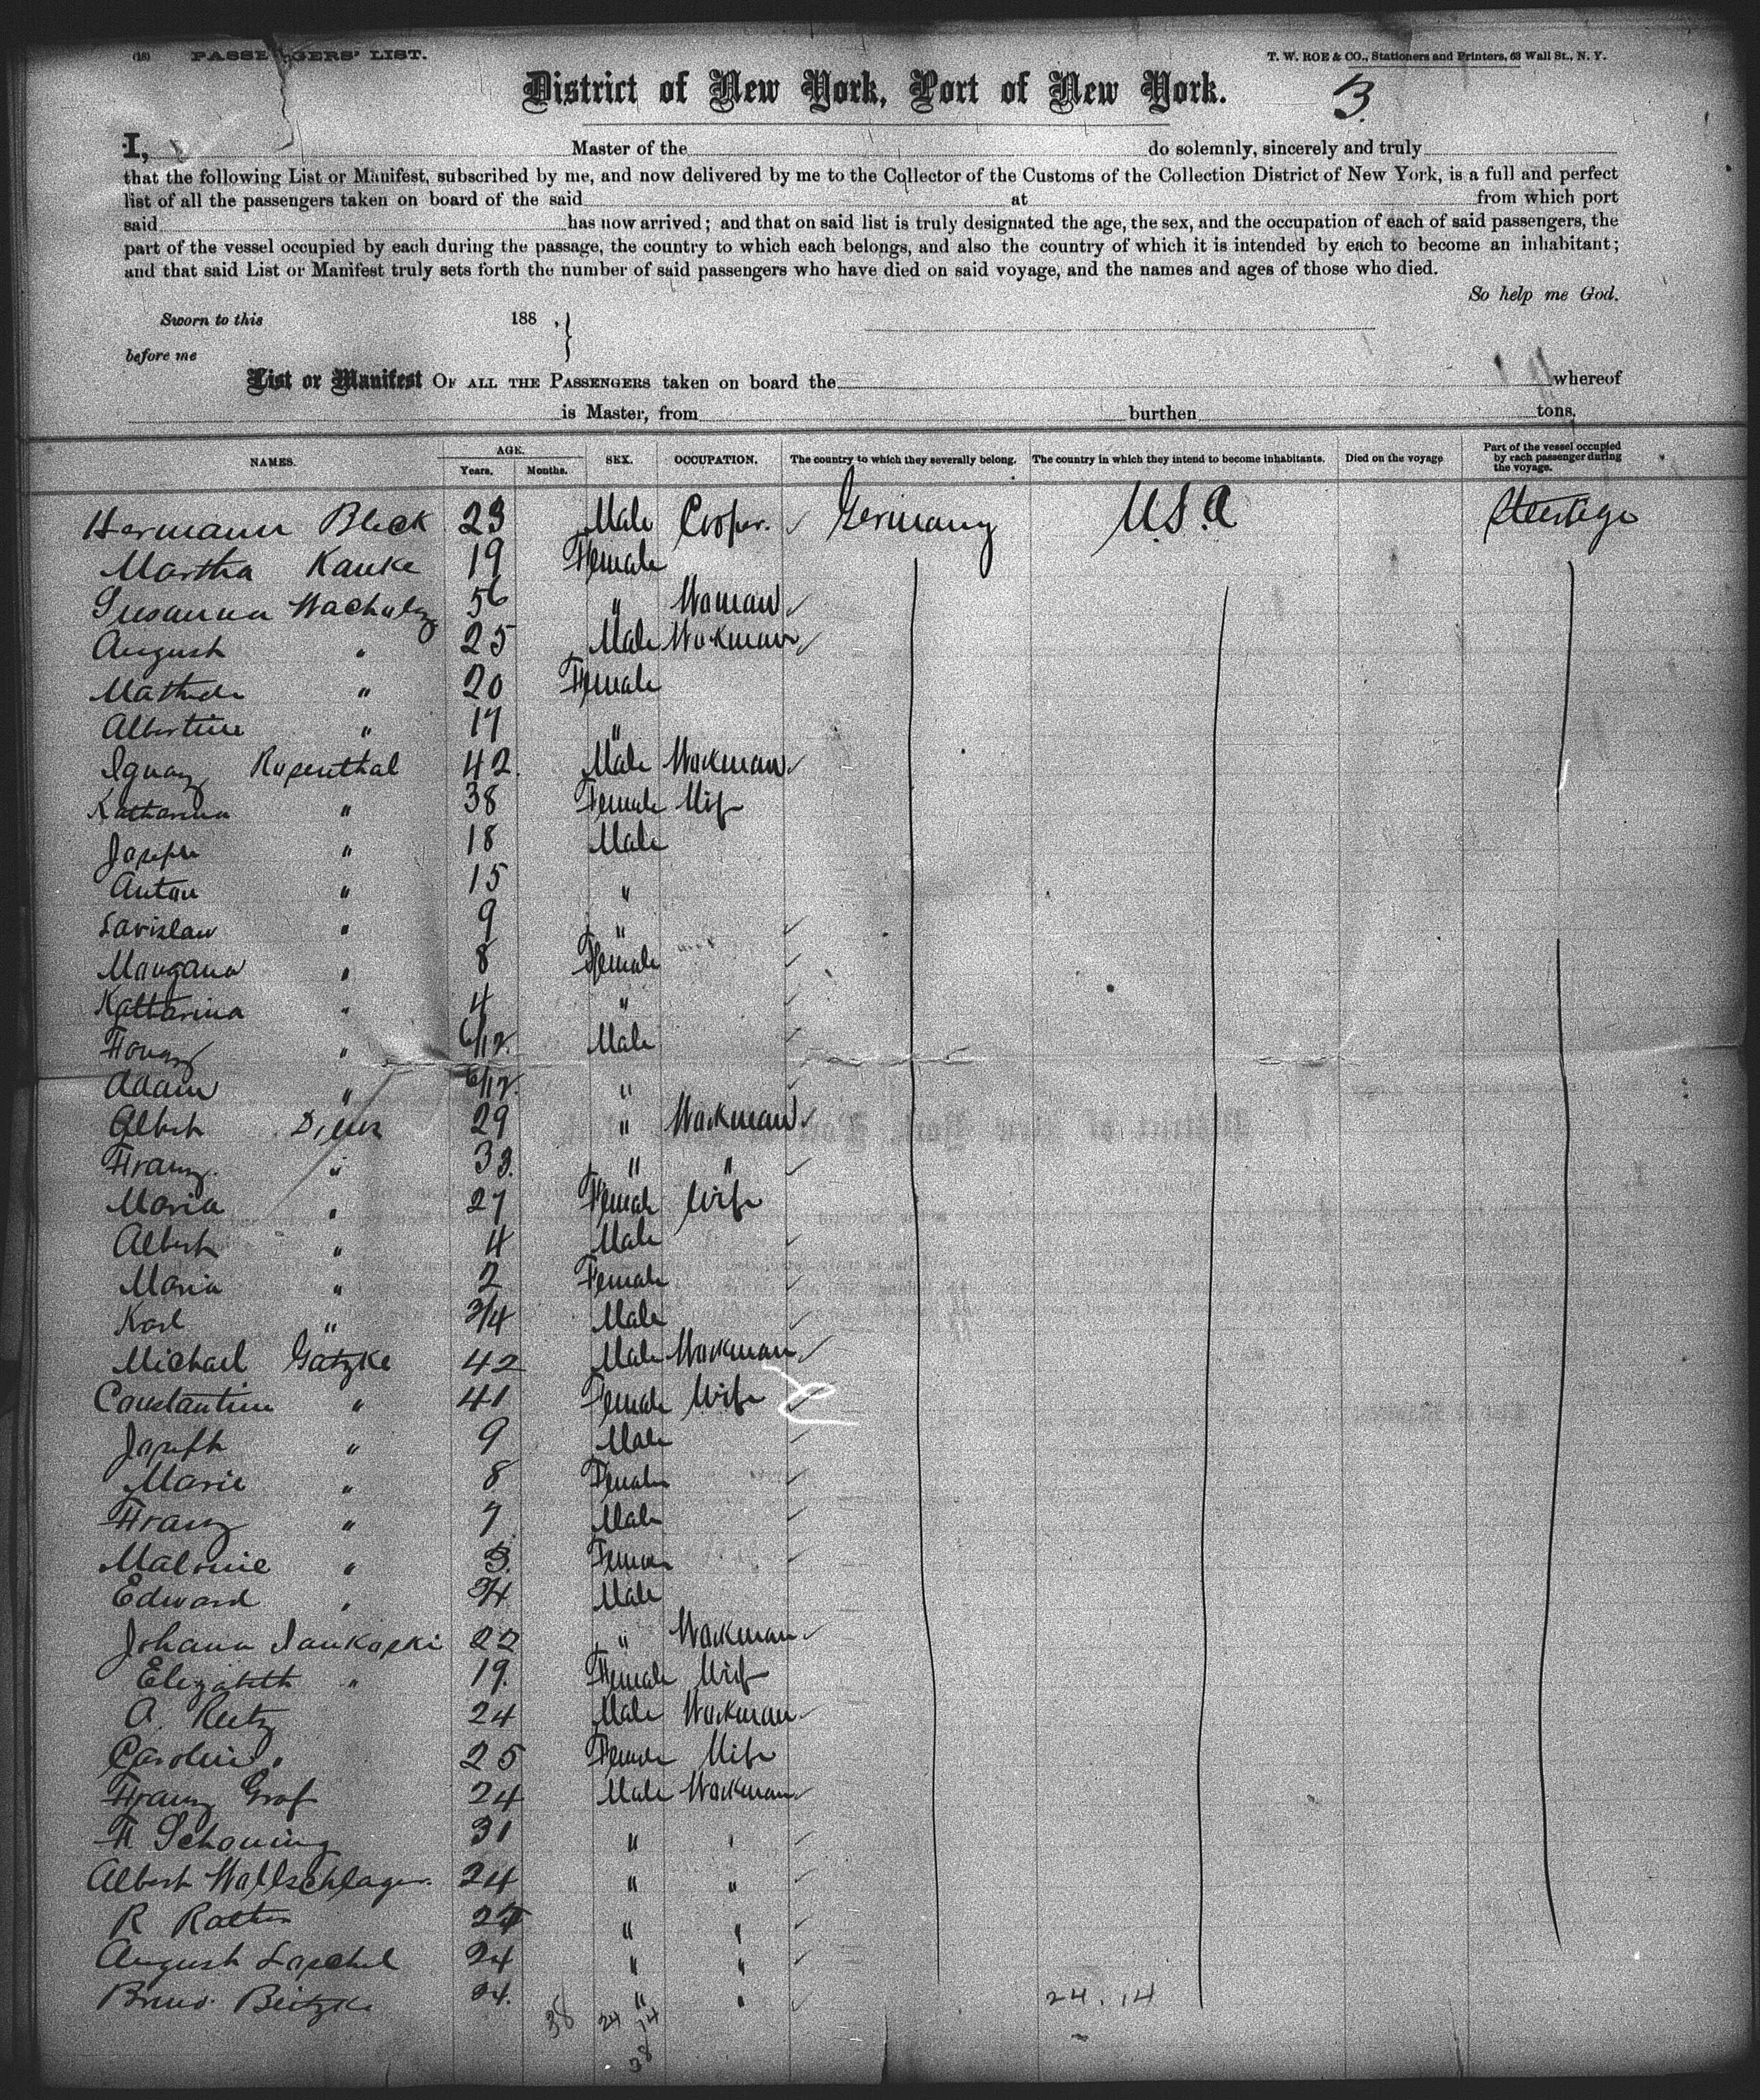 (18) PASSENGERS' LIST. T. W. ROE & CO., Stationers and Printers, 63 Wall St., N. Y.
District of New York, Port of New York. 3
I, Master of the do solemnly, sincerely and truly
that the following List or Manifest, subscribed by me, and now delivered by me to the Collector of the Customs of the Collection District of New York, is a full and perfect
list of all the passengers taken on board of the said at from which port
said has now arrived; and that on said list is truly designated the age, the sex, and the occupation of each of said passengers, the
part of the vessel occupied by each during the passage, the country to which each belongs, and also the country of which it is intended by each to become an inhabitant;
and that said List or Manifest truly sets forth the number of said passengers who have died on said voyage, and the names and ages of those who died.
So help me God.
Sworn to this 188 ,
before me
List or Manifest OF ALL THE PASSENGERS taken on board the whereof
is Master, from burthen tons.
NAMES. AGE. Years. Months. SEX. OCCUPATION. The country to which they severally belong. The country in which they intend to become inhabitants. Died on the voyage Part of the vessel occupied by each passenger during the voyage.
Hermann Bleck 23 Male Cooper. Germany U.S.A Steerage
Martha Kauke 19 Female
Susanna 56 " Woman
August " 25 Male Workman
" 20 Female
Albertine " 17 "
Ignaz Rosenthal 42 Male Workman
Katharina " 38 Female Wife
Joseph " 18 Male
Anton " 15 "
Lavislaw " 9 "
" 8 Female
Katharina " 4 "
" 6/12 Male
Adam " 6/12 "
Albert 29 " Workman
Franz " 33 " "
Maria " 27 Female Wife
Albert " 4 Male
Maria " 2 Female
Karl " 3/4 Male
Michael Gatzke 42 Male Workman
Constantine " 41 Female Wife
Joseph " 9 Male
Marie " 8 Female
Franz " 7 Male
" 3 Female
Edward " 3/4 Male
Johann Jankoski 22 " Workman
Elizabeth " 19 Female Wife
A. Reetz 24 Male Workman
Caroline " 25 Female Wife
Franz Graf 24 Male Workman
F Schoning 31 " "
Albert Wallschlager 24 " "
R " "
August 24 " "
Bruno Beitzke 24 " " 24. 14
38 24 14
38